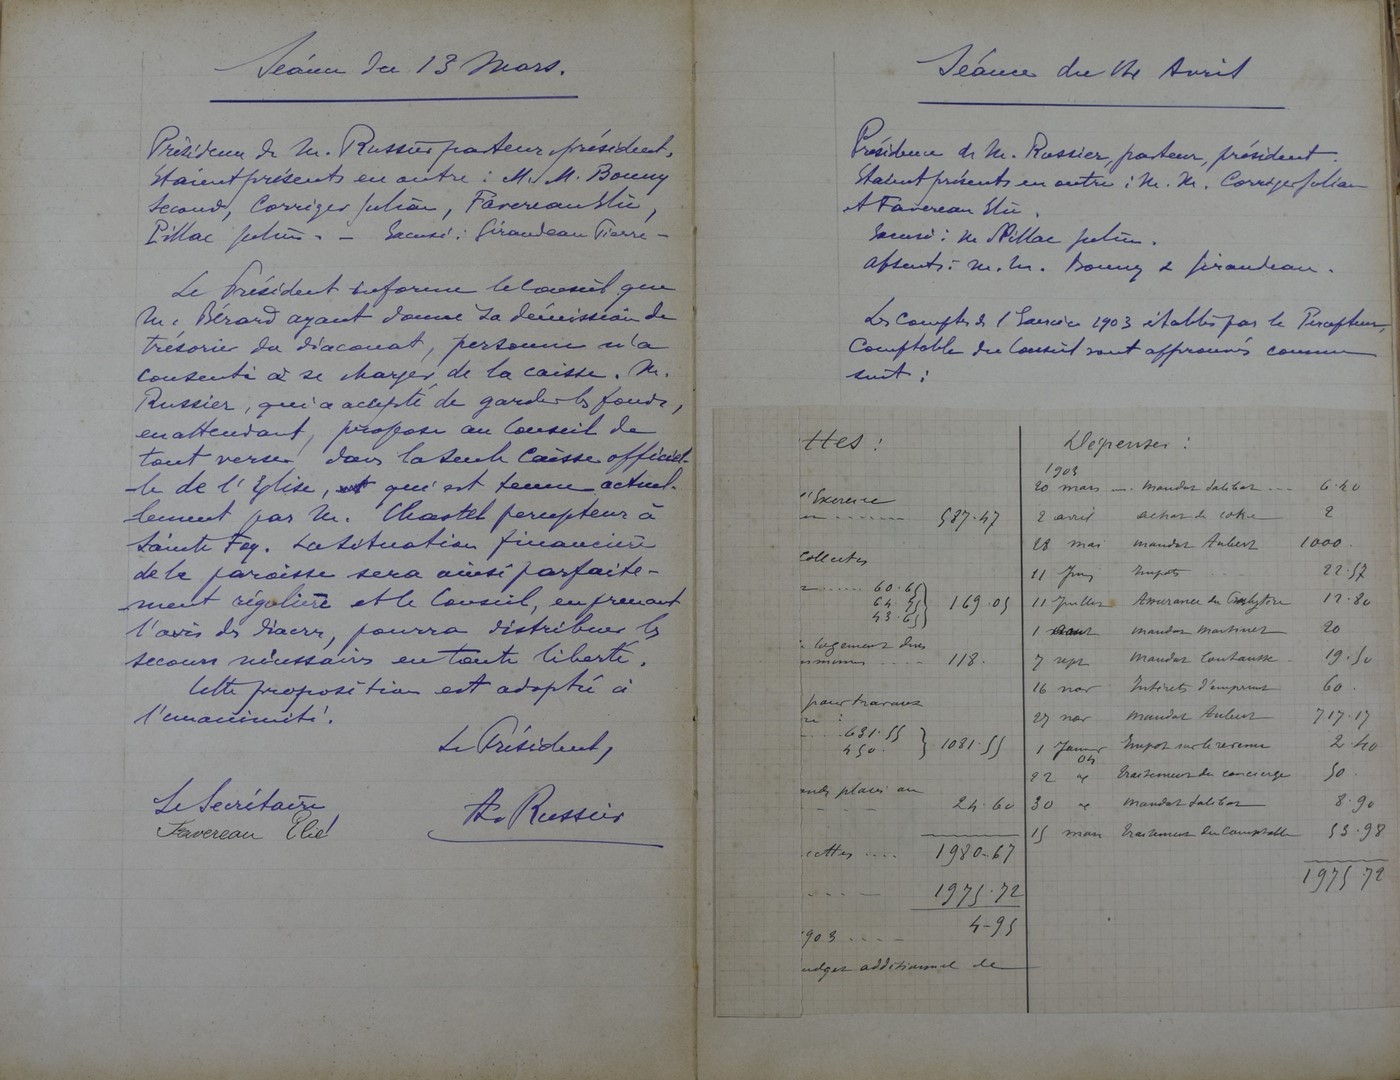 Séance du 13 Mars.
Présidence de M. Russier pasteur, président.
Etaient présents en outre : M. M. Bonny
Second, Corriger Julian, Favereau Elie,
Pillac Julien. - Excusé : Girandeau Pierre -
Le Président informe le Conseil que
M. Bérard ayant donné sa démission de
trésorier du diaconat, personne n'a
consenti à se charger de la caisse. M.
Russier, qui a accepté de garder les fonds,
en attendant, propose au Conseil de
tout verser dans la seule caisse officiel-
le de l'Eglise, qui est tenue actuel-
lement par M. Chastel percepteur à
Sainte Foy. La situation financière
de la paroisse sera ainsi parfaite-
ment régulière et le Conseil, en prenant
l'avis des diacres, pourra distribuer les
secours nécessaires en toute liberté.
Cette proposition est adoptée à
l'unanimité.
Le Président,
Le Secrétaire
Favereau Elie
Russier
Séance du Avril
Présidence de M. Russier, pasteur, président.
Etaient présents en outre : M. M. Corriger Julian
et Favereau Elie.
Excusé : M. Pillac Julien.
Absents : M. M. Bonny & Girandeau.
Les Comptes de l'Exercice 1903 établis par le Percepteur,
Comptable du Conseil sont approuvés comme
suit :
ttes :
l'Exercice
587.47
Collectes
60.65
64.75
43.65
169.05
logement des
118.
pour travaux
631.55
450.
1081.55
places au
24.60
cettes .... 1980-67
1975.72
4-95
903 ....
udget additionnel de
Dépenses :
1903
20 mars - Mandat Salibat ... 6.40
2 avril achat de coke 2
28 mai mandat Aubert 1000.
11 Juin Impots 22.57
11 Juillet Assurance du Presbytère 12.80
1 mandat Martinet 20
7 sept Mandat Contausse 19.50
16 nov Intérêts d'emprunt 60.
27 nov Mandat Aubert 717.17
1 Janvier 04 Impot sur le revenu 2.40
22 Traitement du concierge 50.
30 Mandat Salibat 8.90
15 mars Traitement du Comptable 53.98
1975.72